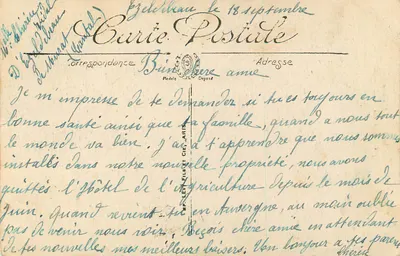 le 18 septembre
Carte Postale
Correspondance
Adresse
Bien chère amie
Je m'impresse de te demandez si tu es toujours en
bonne santé ainsi que ta famille, quand a nous tout
le monde va bien. J'ai a t'apprendre que nous sommes
installés dans notre nouvelle propriété, nous avons
quittés l'Hôtel de l'Agriculture depuis le mois de
Juin. Quand revient-tu en Auvergne, au moin oublie
pas de venir nous voir. Reçois chère amie en attendant
de tes nouvelles mes meilleurs baisers. Un bonjour a tes parents